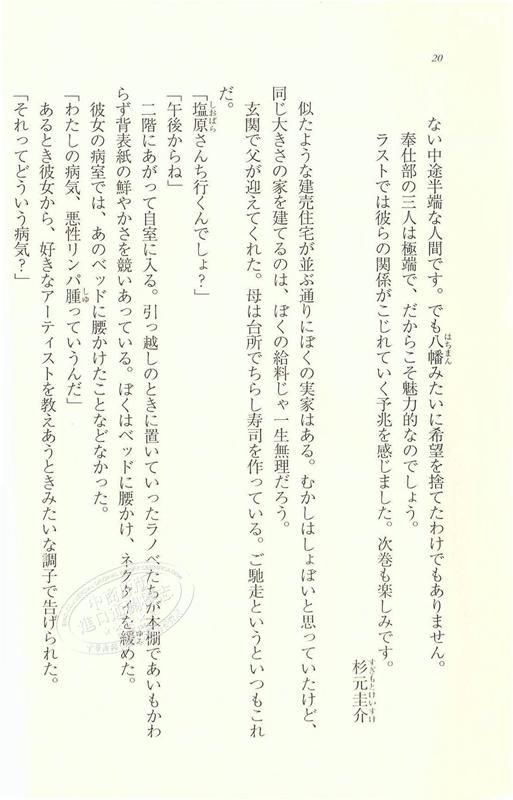 20
ない中途半端な人間です。でも八幡みたいに希望を捨てたわけでもありません。
奉仕部の三人は極端で、だからこそ魅力的なのでしょう。
ラストでは彼らの関係がこじれていく予兆を感じました。次巻も楽しみです。
杉元圭介
似たような建売住宅が並ぶ通りにぼくの実家はある。むかしはしょぼいと思っていたけど、
同じ大きさの家を建てるのは、ぼくの給料じゃ一生無理だろう。
玄関で父が迎えてくれた。母は台所でちらし寿司を作っている。ご馳走というといつもこれ
だ。
「塩原さんち行くんでしょ？」
「午後からね」
二階にあがって自室に入る。引っ越しのときに置いていったラノベたちが本棚であいもかわ
らず背表紙の鮮やかさを競いあっている。ぼくはベッドに腰かけ、ネクタイを緩めた。
彼女の病室では、あのベッドに腰かけたことなどなかった。
「わたしの病気、悪性リンパ腫っていうんだ」
あるとき彼女から、好きなアーティストを教えあうときみたいな調子で告げられた。
「それってどういう病気？」